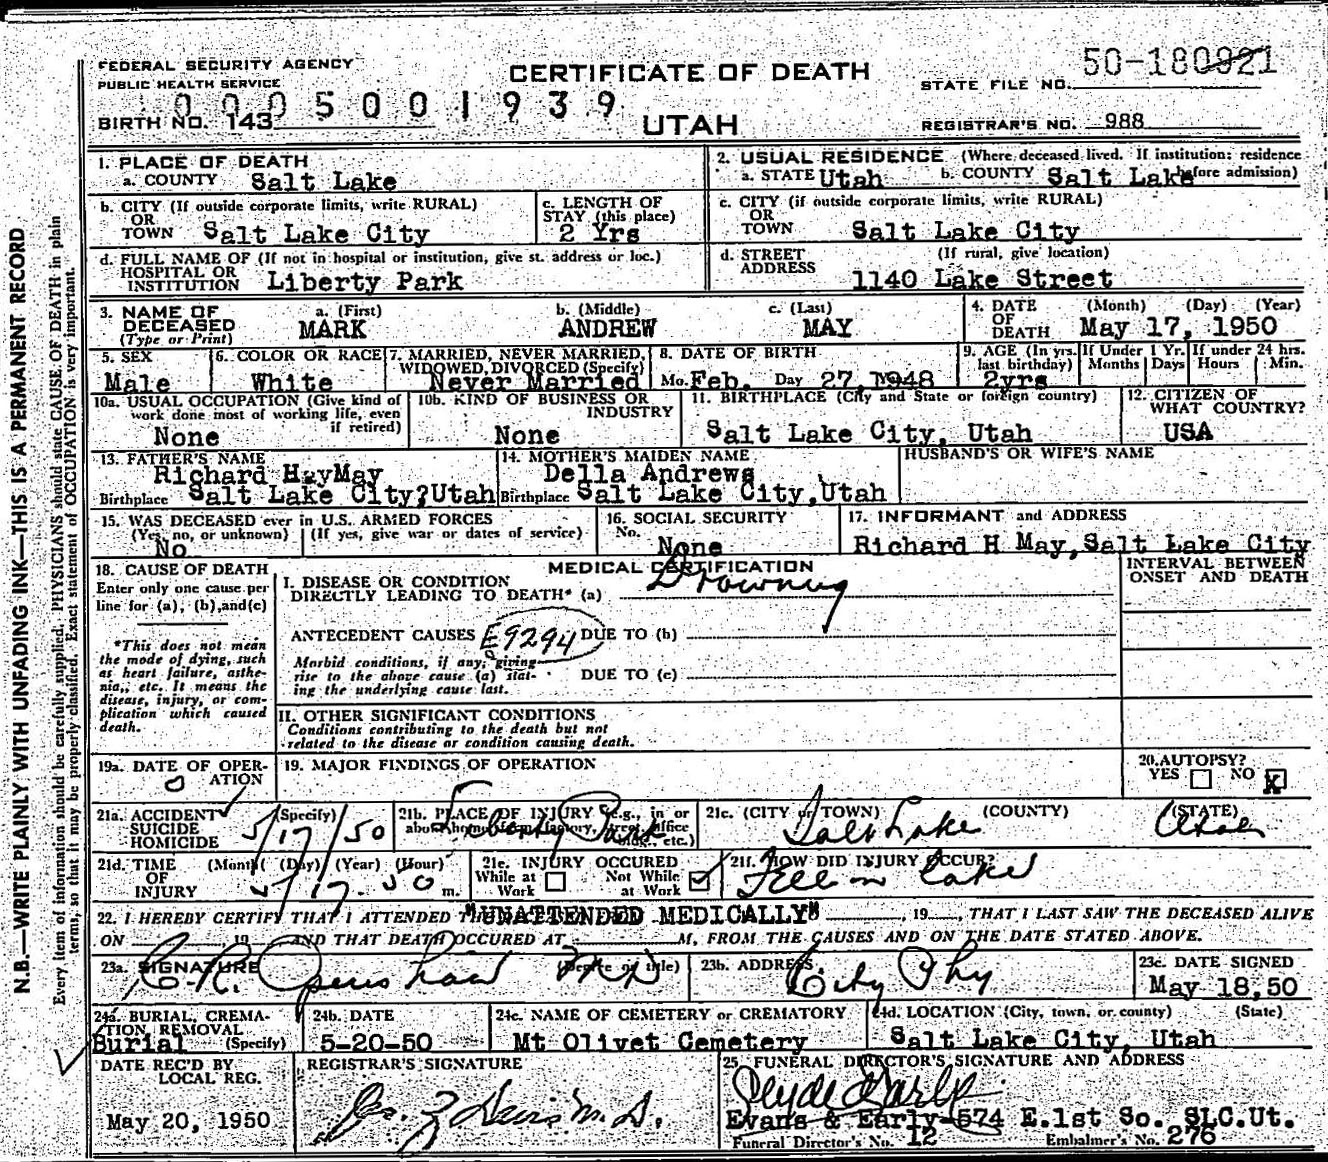 FEDERAL SECURITY AGENCY
PUBLIC HEALTH SERVICE
CERTIFICATE OF DEATH
STATE FILE NO. 50-180921
0005001939
BIRTH NO. 143
UTAH
REGISTRAR'S NO. 988
1. PLACE OF DEATH
a. COUNTY Salt Lake
2. USUAL RESIDENCE (Where deceased lived. If institution: residence before admission)
a. STATE Utah b. COUNTY Salt Lake
b. CITY (If outside corporate limits, write RURAL) OR TOWN Salt Lake City
c. LENGTH OF STAY (this place) 2 Yrs
c. CITY (if outside corporate limits, write RURAL) OR TOWN Salt Lake City
d. FULL NAME OF (If not in hospital or institution, give st. address or loc.) HOSPITAL OR INSTITUTION Liberty Park
d. STREET ADDRESS (If rural, give location) 1140 Lake Street
3. NAME OF DECEASED (Type or Print)
a. (First) MARK
b. (Middle) ANDREW
c. (Last) MAY
4. DATE OF DEATH (Month) (Day) (Year) May 17, 1950
5. SEX Male
6. COLOR OR RACE White
7. MARRIED, NEVER MARRIED, WIDOWED, DIVORCED (Specify) Never Married
8. DATE OF BIRTH Mo. Feb. Day 27, 1948
9. AGE (In yrs. last birthday) 2yrs
If Under 1 Yr. Months Days
If under 24 hrs. Hours Min.
10a. USUAL OCCUPATION (Give kind of work done most of working life, even if retired) None
10b. KIND OF BUSINESS OR INDUSTRY None
11. BIRTHPLACE (City and State or foreign country) Salt Lake City, Utah
12. CITIZEN OF WHAT COUNTRY? USA
13. FATHER'S NAME Richard HayMay
Birthplace Salt Lake City?Utah
14. MOTHER'S MAIDEN NAME Della Andrews
Birthplace Salt Lake City,Utah
HUSBAND'S OR WIFE'S NAME
15. WAS DECEASED ever in U.S. ARMED FORCES
(Yes, no, or unknown) (If yes, give war or dates of service)
No
16. SOCIAL SECURITY No. None
17. INFORMANT and ADDRESS
Richard H May,Salt Lake City
18. CAUSE OF DEATH
Enter only one cause per line for (a), (b), and (c)
*This does not mean the mode of dying, such as heart failure, asthenia, etc. It means the disease, injury, or complication which caused death.
MEDICAL CERTIFICATION
INTERVAL BETWEEN ONSET AND DEATH
I. DISEASE OR CONDITION DIRECTLY LEADING TO DEATH* (a) Drowning
ANTECEDENT CAUSES E9294 DUE TO (b)
Morbid conditions, if any, giving rise to the above cause (a) stating the underlying cause last.
DUE TO (c)
II. OTHER SIGNIFICANT CONDITIONS
Conditions contributing to the death but not related to the disease or condition causing death.
19a. DATE OF OPERATION 0
19. MAJOR FINDINGS OF OPERATION
20. AUTOPSY? YES NO X
21a. ACCIDENT SUICIDE HOMICIDE (Specify) 5/17/50
21b. PLACE OF INJURY (e.g., in or about home, farm, factory, street, office bldg., etc.) Liberty Park
21c. (CITY or TOWN) (COUNTY) (STATE) Salt Lake Utah
21d. TIME OF INJURY (Month) (Day) (Year) (Hour) 5/17.50 m.
21e. INJURY OCCURED While at Work Not While at Work
21f. HOW DID INJURY OCCUR? Fell in lake
22. I HEREBY CERTIFY THAT I ATTENDED "UNATTENDED MEDICALLY" , 19 , THAT I LAST SAW THE DECEASED ALIVE
ON 19 AND THAT DEATH OCCURED AT M, FROM THE CAUSES AND ON THE DATE STATED ABOVE.
23a. SIGNATURE (Degree or title) C. R. Openshaw MD
23b. ADDRESS City Phy
23c. DATE SIGNED May 18,50
24a. BURIAL, CREMATION, REMOVAL (Specify) Burial
24b. DATE 5-20-50
24c. NAME OF CEMETERY or CREMATORY Mt Olivet Cemetery
24d. LOCATION (City, town, or county) (State) Salt Lake City, Utah
DATE REC'D BY LOCAL REG. May 20, 1950
REGISTRAR'S SIGNATURE
25. FUNERAL DIRECTOR'S SIGNATURE AND ADDRESS
Clyde Early
Evans & Early-574 E.1st So. SLC.Ut.
Funeral Director's No. 12 Embalmer's No. 276
N.B.—WRITE PLAINLY WITH UNFADING INK—THIS IS A PERMANENT RECORD
Every item of information should be carefully supplied. PHYSICIANS should state CAUSE OF DEATH in plain
terms, so that it may be properly classified. Exact statement of OCCUPATION is very important.